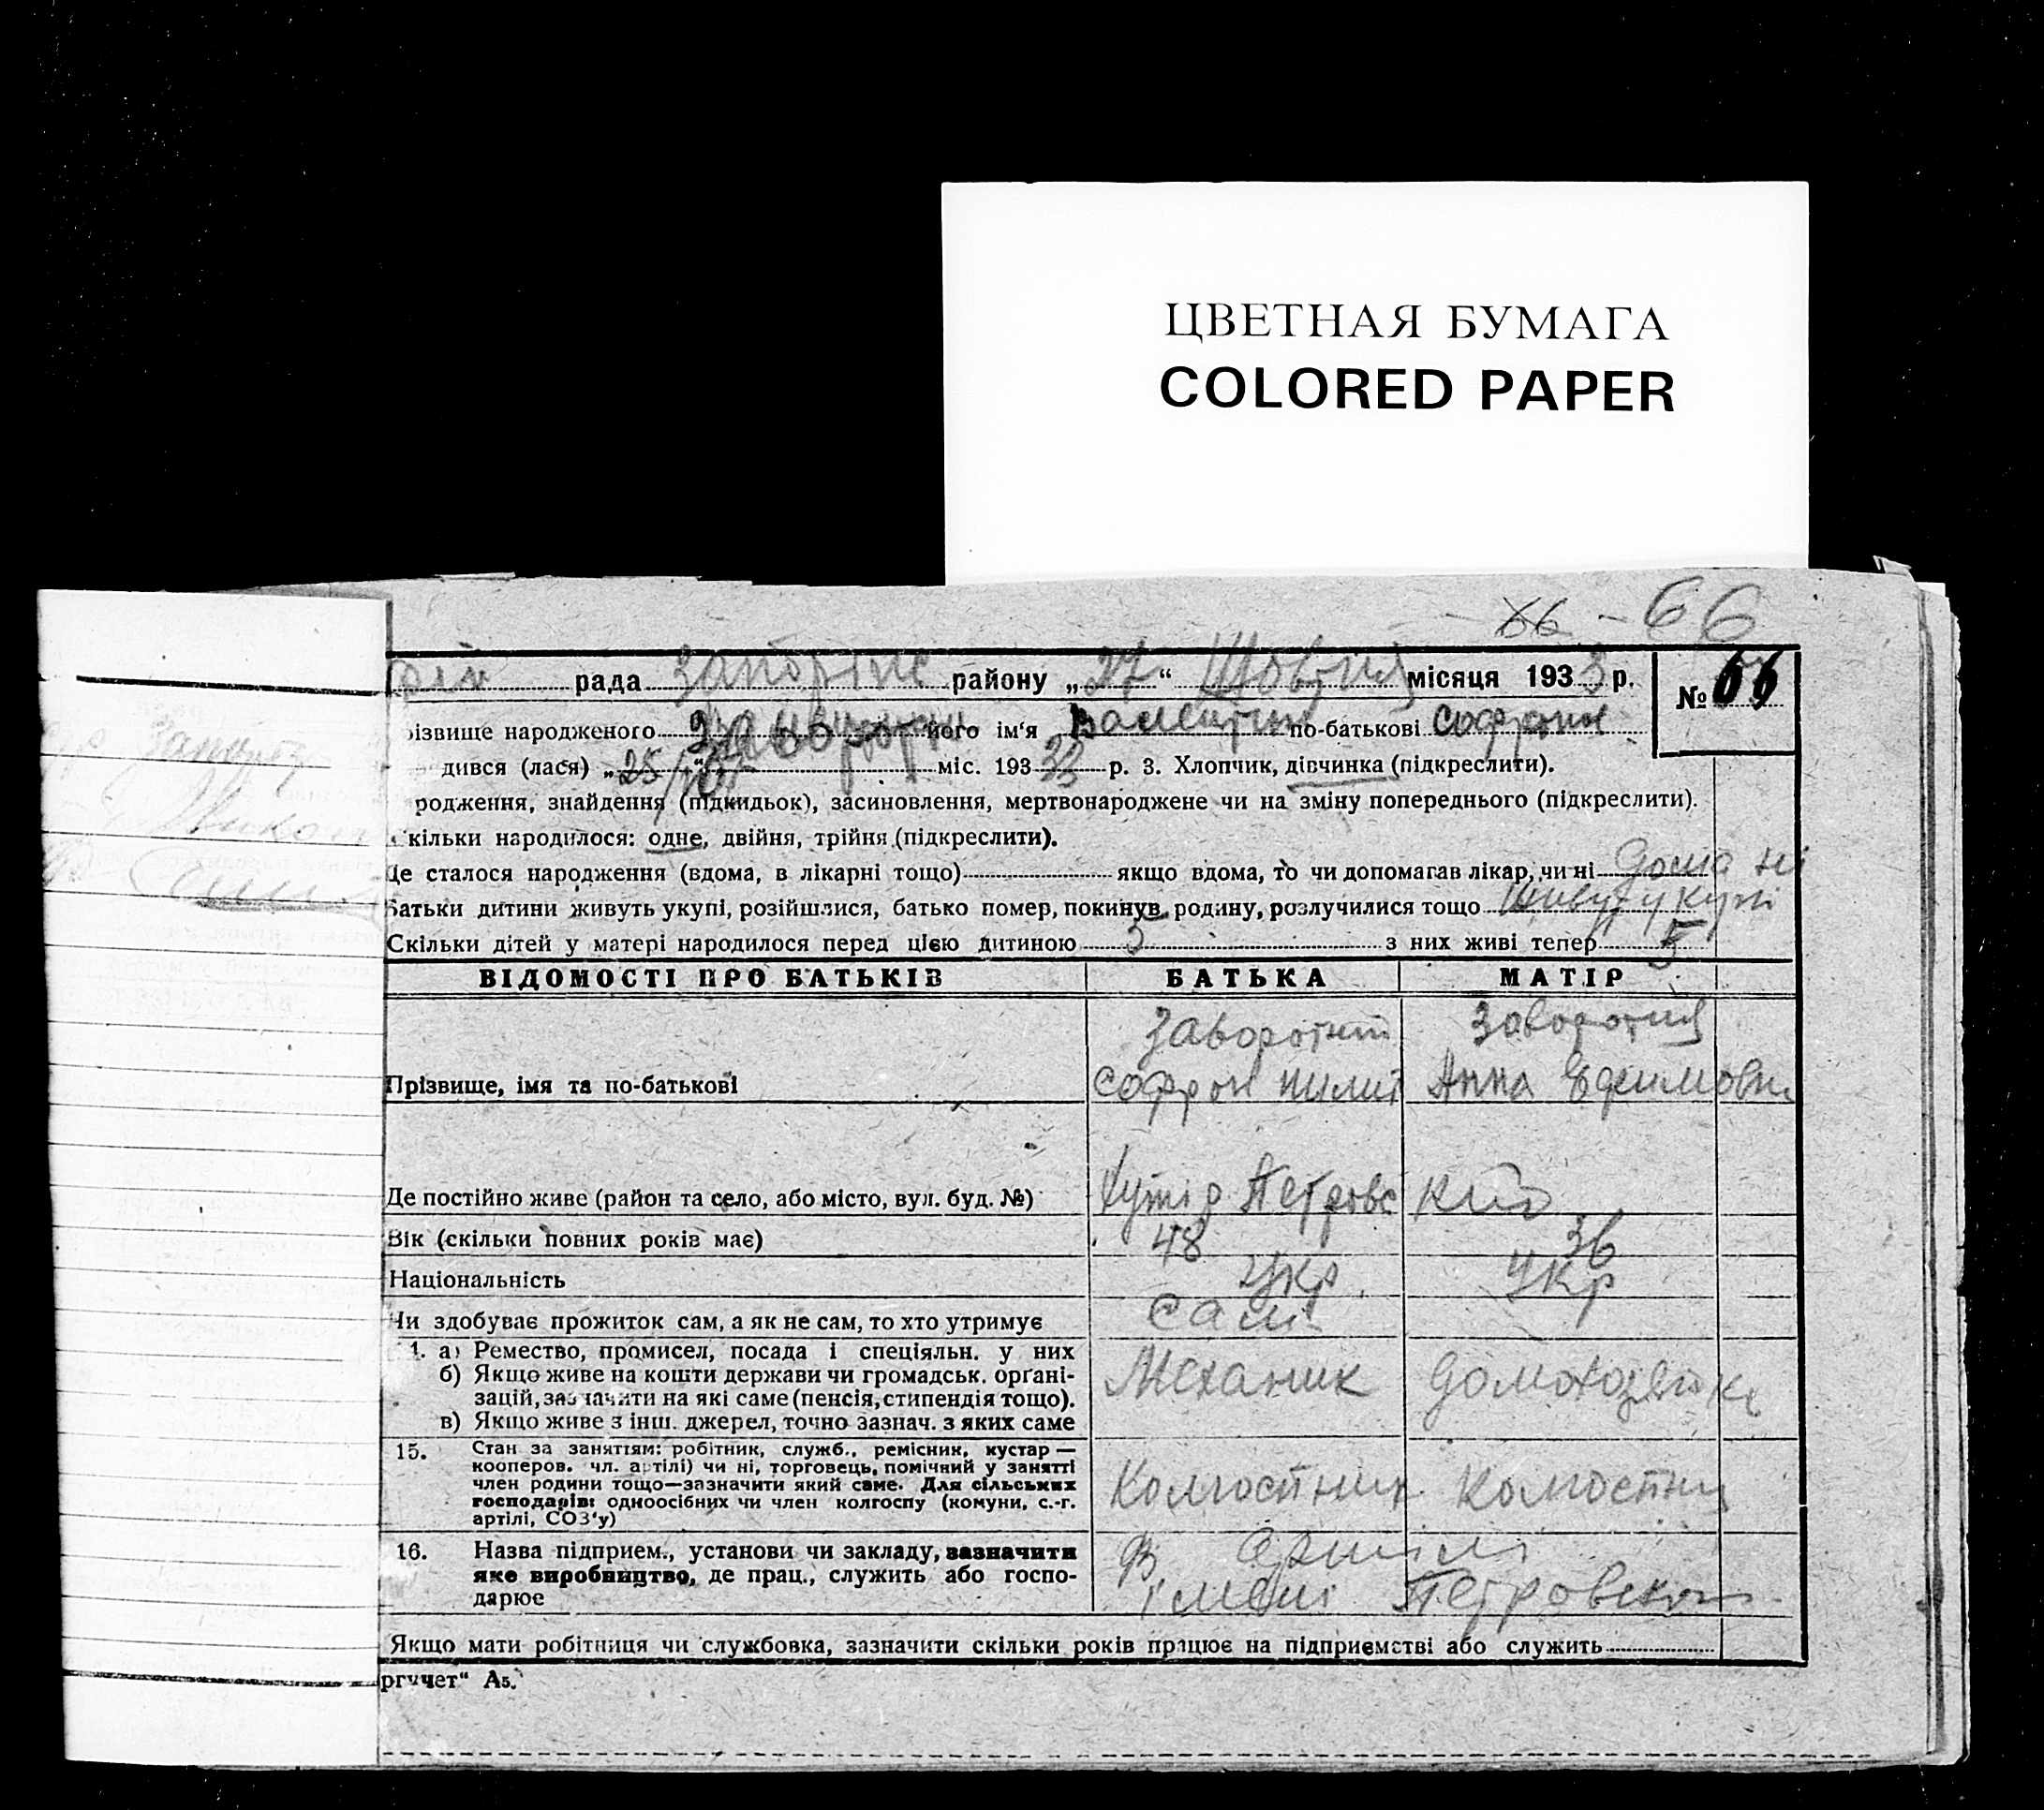 ЦВЕТНАЯ БУМАГА
COLORED PAPER
66 - 66
рада Запоріж району „27“ Жовтня місяця 1933 р. № 66
різвище народженого Заворотн його ім‘я Валентин по-батькові Софрон
дився (лася) „25/10“ міс. 1933 р. 3. Хлопчик, дівчинка (підкреслити).
родження, знайдення (підкидьок), засиновлення, мертвонароджене чи на зміну попереднього (підкреслити).
кільки народилося: одне, двійня, трійня (підкреслити).
Де сталося народження (вдома, в лікарні тощо) якщо вдома, то чи допомагав лікар, чи ні дома ні
Батьки дитини живуть укупі, розійшлися, батько помер, покинув родину, розлучилися тощо живуть укупі
Скільки дітей у матері народилося перед цією дитиною 5 з них живі тепер 5
ВІДОМОСТІ ПРО БАТЬКІВ БАТЬКА МАТІР
Заворотній Заворотня
Прізвище, імя та по-батькові Софрон Пилип Анна Ефимовна
Де постійно живе (район та село, або місто, вул. буд. №) Хутір Петровс кий
Вік (скільки повних років має) 48 36
Національність Укр Укр
Чи здобуває прожиток сам, а як не сам, то хто утримує сам
1. а) Ремество, промисел, посада і спеціяльн. у них
б) Якщо живе на кошти держави чи громадськ. органі- Механик домохозяйка
зацій, зазначити на які саме (пенсія, стипендія тощо).
в) Якщо живе з інш. джерел, точно зазнач. з яких саме
15. Стан за заняттям: робітник, служб., ремісник, кустар —
кооперов. чл. артілі) чи ні, торговець, помічний у занятті
член родини тощо—зазначити який саме. Для сільських Колгоспник Колгоспни
господарів: одноосібних чи член колгоспу (комуни, с.-г.
артілі, СОЗ‘у)
16. Назва підприєм., установи чи закладу, зазначити В артілі
яке виробництво, де прац., служить або госпо- імені Петровского
дарює
Якщо мати робітниця чи службовка, зазначити скільки років працює на підприємстві або служить
ргучет“ А5.